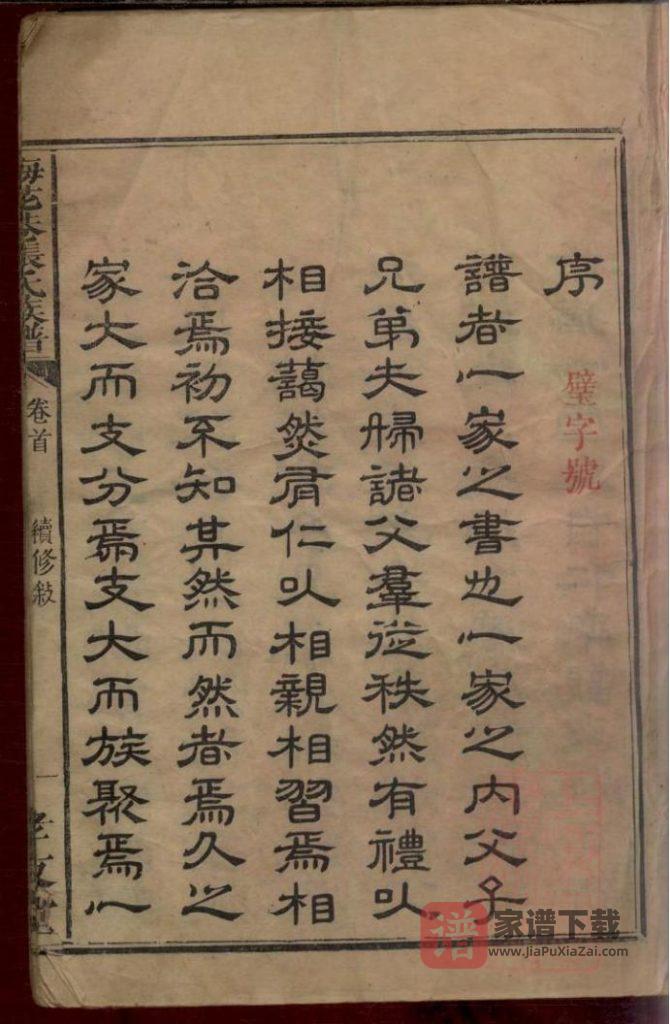 序
璧字號
譜者一家之書也一家之內父子
兄弟夫婦諸父羣從秩然有禮以
相接藹然有仁以相親相習焉相
洽焉初不知其然而然者焉久之
家大而支分焉支大而族聚焉一
張氏族譜
卷首
續修敘
一
孝友堂
譜
家谱下载
www.JiaPuXiaZai.com